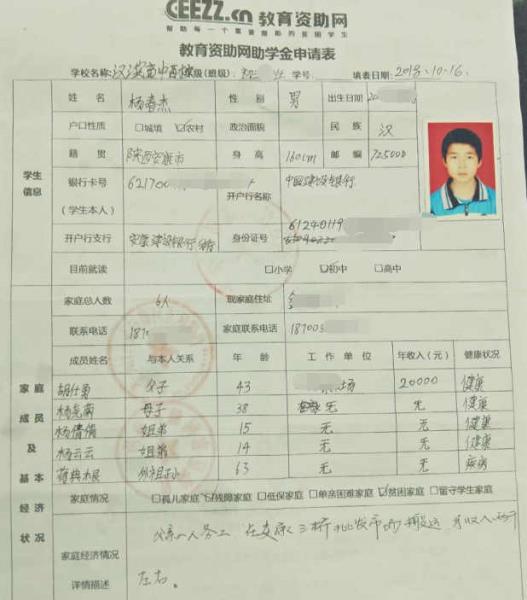 CEEZZ.cn 教育资助网
帮助每一个需要帮助的贫困学生
教育资助网助学金申请表
学校名称: 级(班级): 学号: 填表日期: 2018.10.16.
姓名 杨春杰 性别 男 出生日期 20
户口性质 □城镇 ☑农村 政治面貌 民族 汉
籍贯 陕西安康市 身高 160cm 邮编 725000
学生信息
银行卡号 62170
(学生本人) 开户行名称 中国建设银行
开户行支行 安康建设银行 身份证号 61240119
目前就读 □小学 ☑初中 □高中
家庭总人数 6人 现家庭住址
联系电话 187 家庭联系电话 18700
成员姓名 与本人关系 年龄 工作单位 年收入(元) 健康状况
家庭成员及基本经济状况
胡仕勇 父子 43 场 20000 健康
杨 南 母子 38 无 无 健康
杨倩倩 姐弟 15 无 无 健康
杨云云 姐弟 14 无 无 健康
根 外祖孙 63 无 无 疾病
家庭情况 □孤儿家庭 ☑残障家庭 □低保家庭 □单亲困难家庭 ☑贫困家庭 □留守学生家庭
家庭经济情况
详情描述
父亲一人务工 在安康三桥批发市场搬运 月收入
左右。